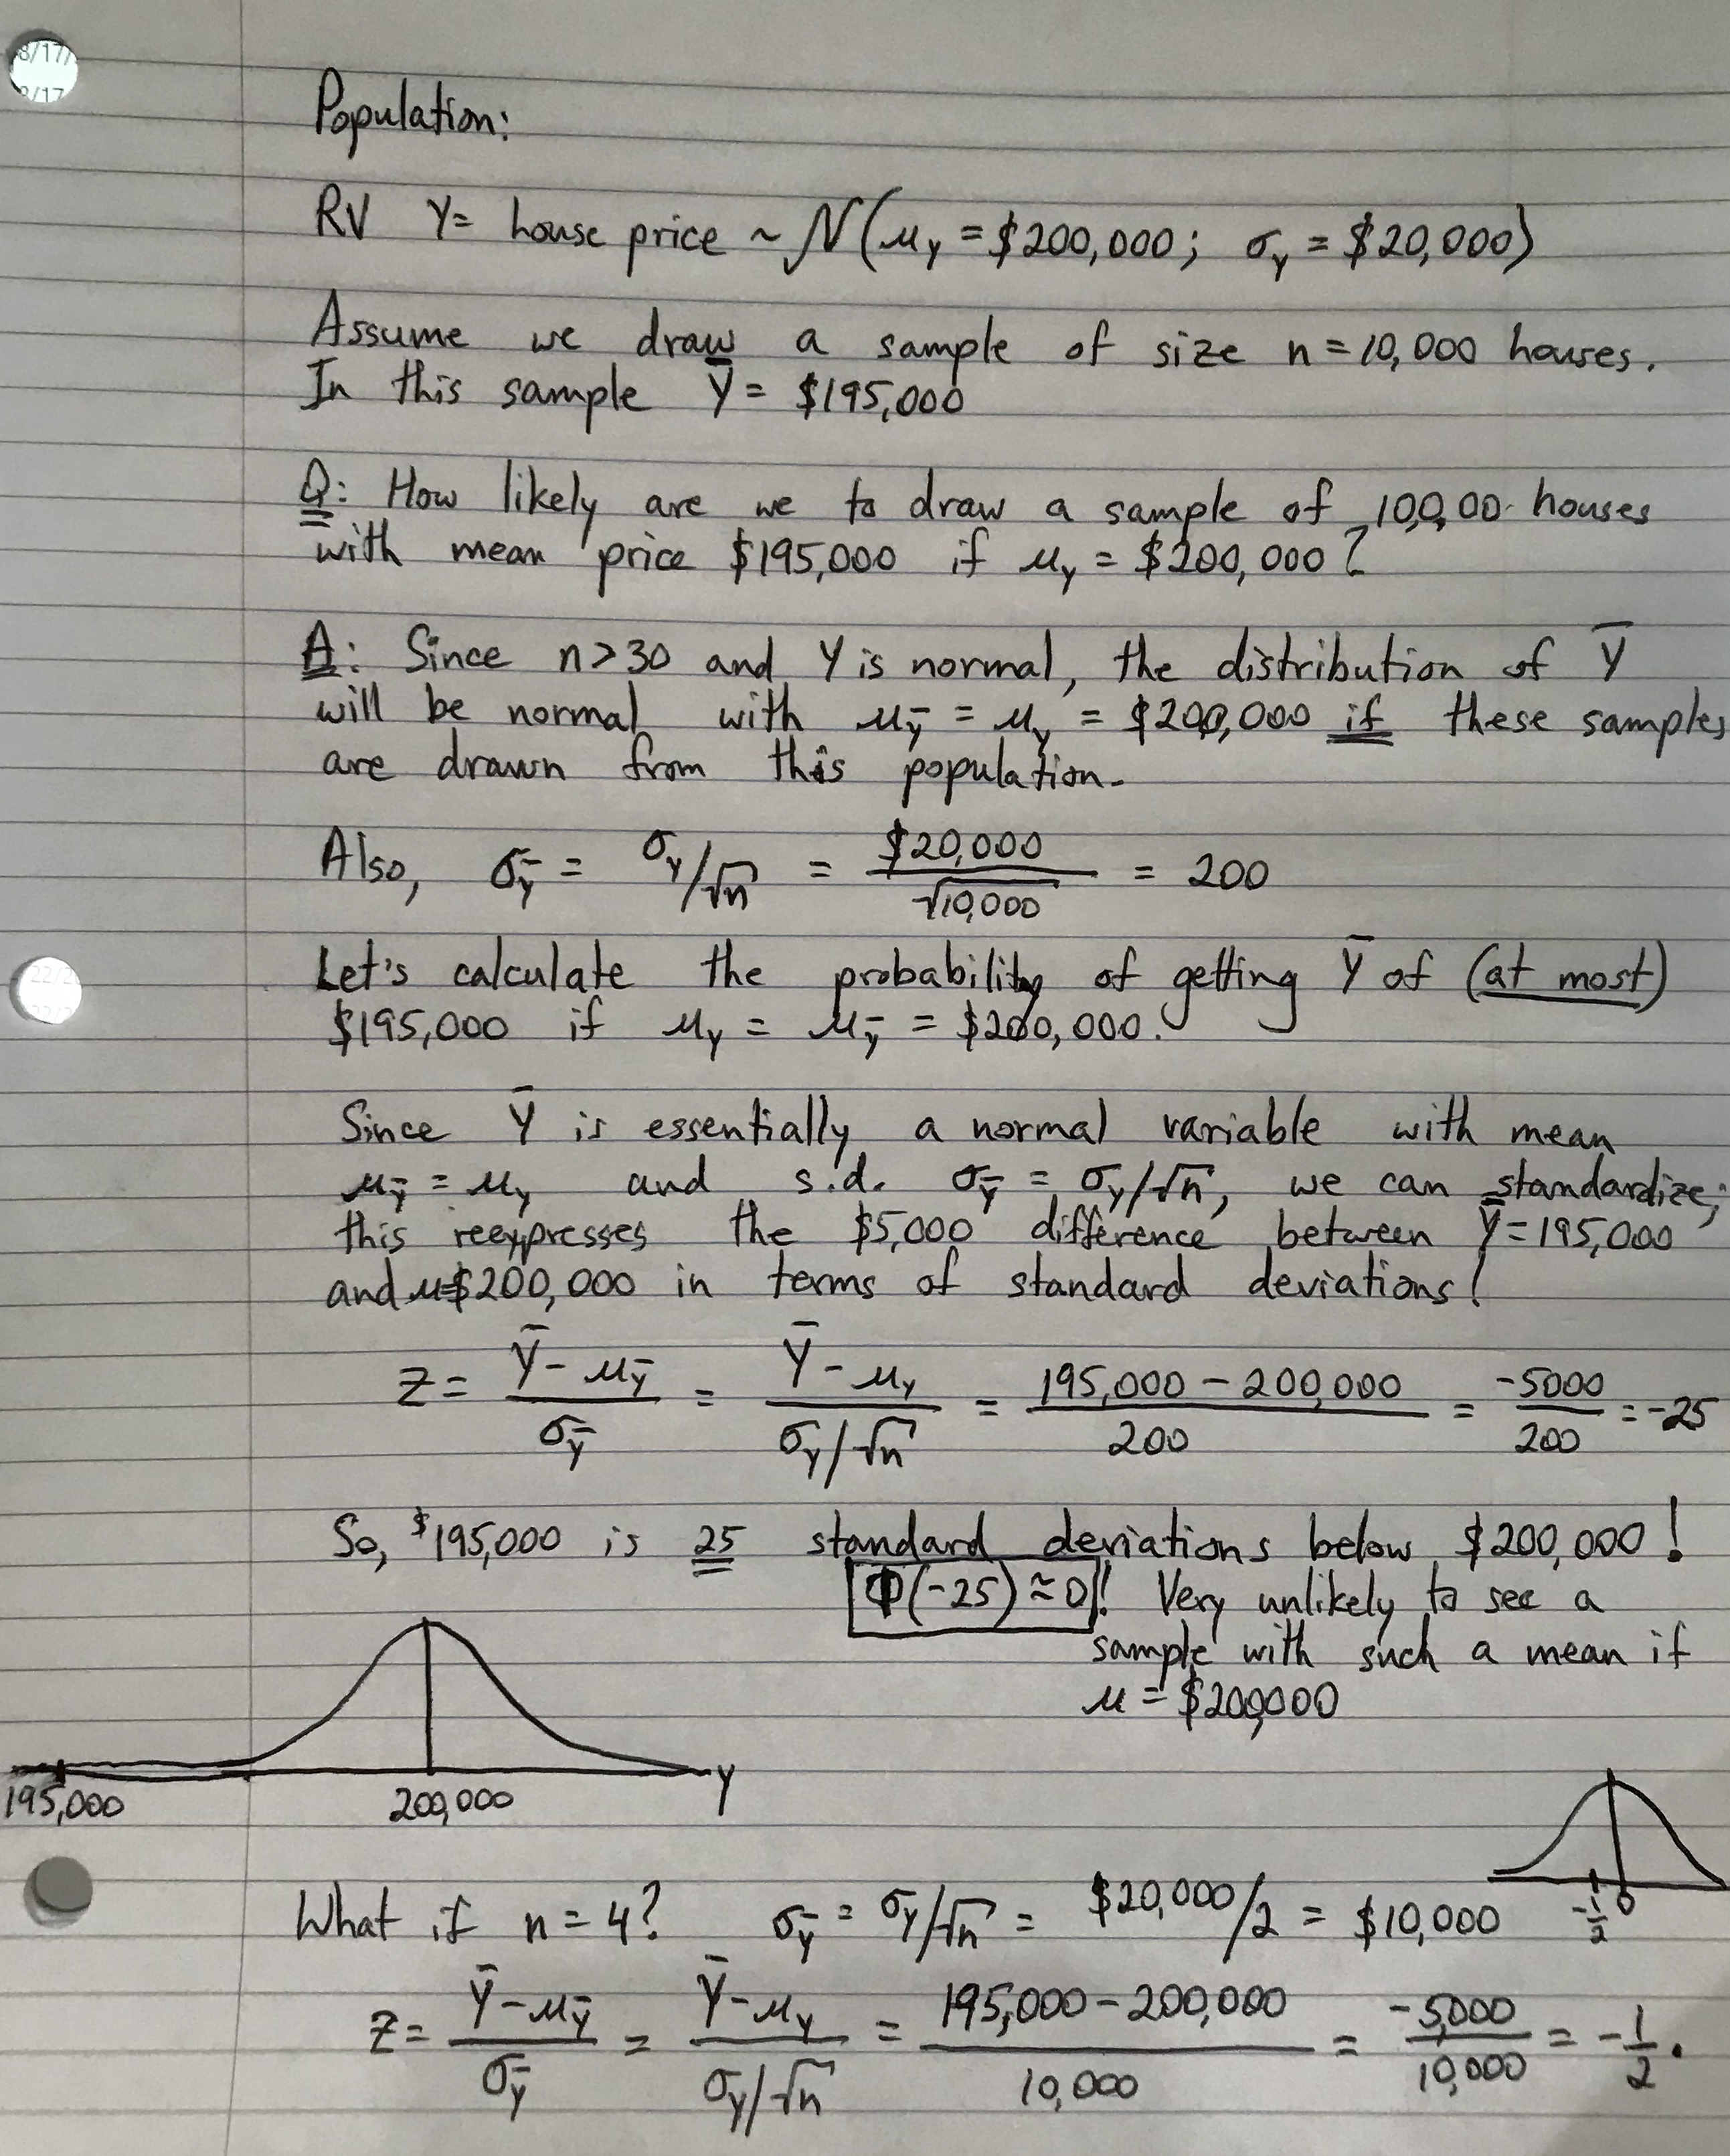 8/17/
8/17
Population:
RV Y= house price ~ N(μ_Y = $200,000; σ_Y = $20,000)
Assume we draw a sample of size n = 10,000 houses.
In this sample Ȳ = $195,000
Q: How likely are we to draw a sample of 10,0,00 houses
with mean price $195,000 if μ_Y = $200,000?
A: Since n>30 and Y is normal, the distribution of Ȳ
will be normal with μ_Ȳ = μ_Y = $200,000 if these samples
are drawn from this population.
Also, σ_Ȳ = σ_Y/√n = $20,000/√10,000 = 200
Let's calculate the probability of getting Ȳ of (at most)
$195,000 if μ_Y = μ_Ȳ = $200,000.
Since Ȳ is essentially a normal variable with mean
μ_Ȳ = μ_Y and s.d. σ_Ȳ = σ_Y/√n, we can standardize;
this reexpresses the $5,000 difference between Ȳ=195,000
and μ=$200,000 in terms of standard deviations!
Z = (Ȳ - μ_Ȳ)/σ_Ȳ = (Ȳ - μ_Y)/(σ_Y/√n) = (195,000 - 200,000)/200 = -5000/200 = -25
So, $195,000 is 25 standard deviations below $200,000!
Φ(-25) ≈ 0! Very unlikely to see a
sample with such a mean if
μ = $200,000
195,000 200,000 Y
What if n = 4? σ_Ȳ = σ_Y/√n = $20,000/2 = $10,000
-1/2 0
Z = (Ȳ - μ_Ȳ)/σ_Ȳ = (Ȳ - μ_Y)/(σ_Y/√n) = (195,000 - 200,000)/10,000 = -5,000/10,000 = -1/2.